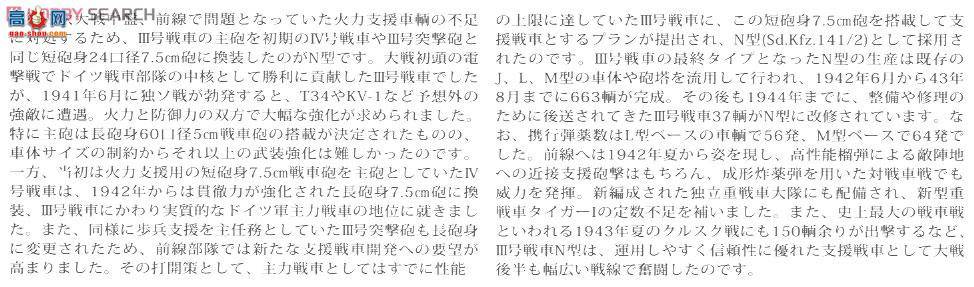 大戦中盤、前線で問題となっていた火力支援車輌の不足
に対処するため、Ⅲ号戦車の主砲を初期のⅣ号戦車やⅢ号突撃砲と
同じ短砲身24口径7.5㎝砲に換装したのがN型です。大戦初頭の電
撃戦でドイツ戦車部隊の中核として勝利に貢献したⅢ号戦車でした
が、1941年6月に独ソ戦が勃発すると、T34やKV-1など予想外の
強敵に遭遇。火力と防御力の双方で大幅な強化が求められました。
特に主砲は長砲身60口径5㎝戦車砲の搭載が決定されたものの、
車体サイズの制約からそれ以上の武装強化は難しかったのです。
一方、当初は火力支援用の短砲身7.5㎝戦車砲を主砲としていたⅣ
号戦車は、1942年からは貫徹力が強化された長砲身7.5㎝砲に換
装、Ⅲ号戦車にかわり実質的なドイツ軍主力戦車の地位に就きまし
た。また、同様に歩兵支援を主任務としていたⅢ号突撃砲も長砲身
に変更されたため、前線部隊では新たな支援戦車開発への要望が
高まりました。その打開策として、主力戦車としてはすでに性能
の上限に達していたⅢ号戦車に、この短砲身7.5㎝砲を搭載して支
援戦車とするプランが提出され、N型(Sd.Kfz.141/2)として採用さ
れたのです。Ⅲ号戦車の最終タイプとなったN型の生産は既存の
J、L、M型の車体や砲塔を流用して行われ、1942年6月から43年
8月までに663輌が完成。その後も1944年までに、整備や修理の
ために後送されてきたⅢ号戦車37輌がN型に改修されています。な
お、携行弾薬数はL型ベースの車輌で56発、M型ベースで64発で
した。前線へは1942年夏から姿を現し、高性能榴弾による敵陣地
への近接支援砲撃はもちろん、成形炸薬弾を用いた対戦車戦でも
威力を発揮。新編成された独立重戦車大隊にも配備され、新型重
戦車タイガーIの定数不足を補いました。また、史上最大の戦車戦
といわれる1943年夏のクルスク戦にも150輌余りが出撃するなど、
Ⅲ号戦車N型は、運用しやすく信頼性に優れた支援戦車として大戦
後半も幅広い戦線で奮闘したのです。